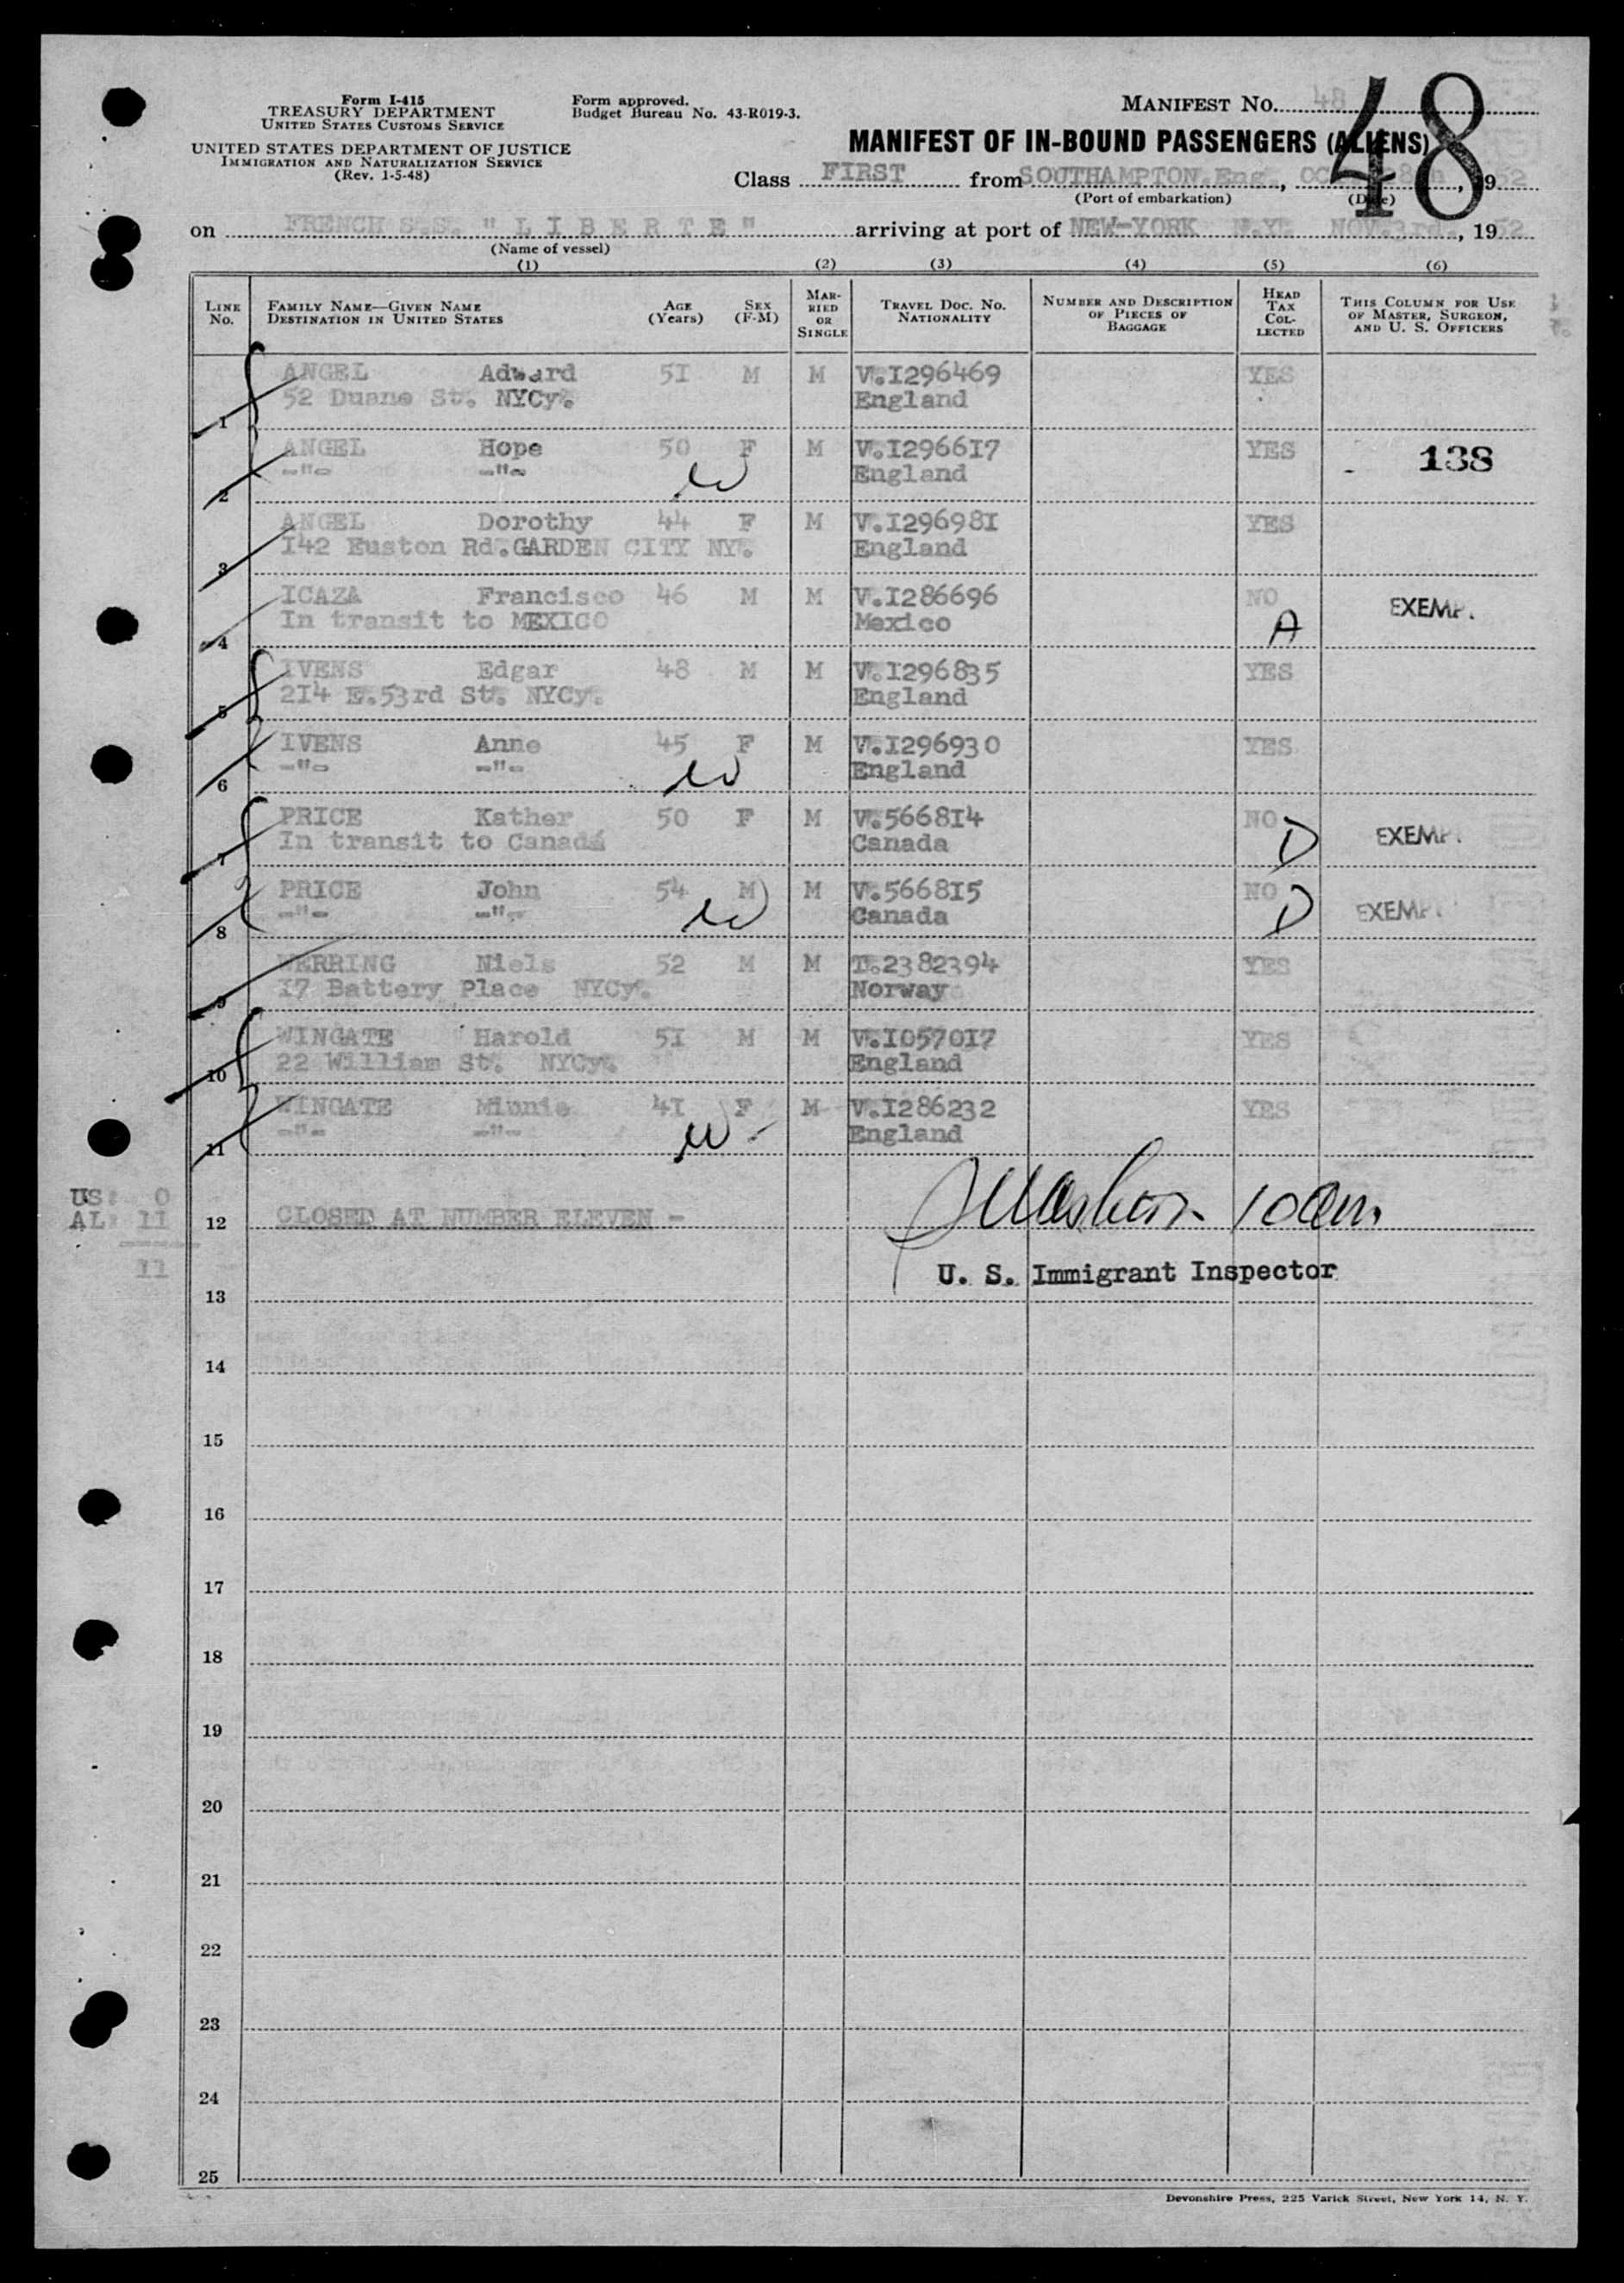 Form I-415
TREASURY DEPARTMENT
UNITED STATES CUSTOMS SERVICE
UNITED STATES DEPARTMENT OF JUSTICE
IMMIGRATION AND NATURALIZATION SERVICE
(Rev. 1-5-48)
Form approved.
Budget Bureau No. 43-R019-3.
MANIFEST No. 48
48
MANIFEST OF IN-BOUND PASSENGERS (ALIENS)
Class FIRST from SOUTHAMPTON.Eng. , 1952
(Port of embarkation) (Date)
on FRENCH S.S. "L I B E R T E" arriving at port of NEW-YORK N.Y. NOV.3rd. , 1952
(Name of vessel)
(1) (2) (3) (4) (5) (6)
LINE No. FAMILY NAME—GIVEN NAME DESTINATION IN UNITED STATES AGE (Years) SEX (F-M) MARRIED OR SINGLE TRAVEL DOC. No. NATIONALITY NUMBER AND DESCRIPTION OF PIECES OF BAGGAGE HEAD TAX COLLECTED THIS COLUMN FOR USE OF MASTER, SURGEON, AND U. S. OFFICERS
ANGEL Adward 51 M M V.I296469 YES
1 52 Duane St. NYCy. England
ANGEL Hope 50 F M V.I296617 YES - 138
2 -"- -"- England
ANGEL Dorothy 44 F M V.I296981 YES
3 I42 Euston Rd.GARDEN CITY NY. England
ICAZA Francisco 46 M M V.I286696 NO EXEMP.
4 In transit to MEXICO Mexico A
IVENS Edgar 48 M M V.I296835 YES
5 2I4 E.53rd St. NYCy. England
IVENS Anne 45 F M V.I296930 YES
6 -"- -"- England
PRICE Kather 50 F M V.5668I4 NO EXEMP
7 In transit to Canada Canada D
PRICE John 54 M M V.5668I5 NO EXEMP
8 -"- -"- Canada D
WERRING Niels 52 M M T.2382394 YES
9 I7 Battery Place NYCy. Norway
WINGATE Harold 5I M M V.I0570I7 YES
10 22 William St. NYCy. England
WINGATE Minnie 4I F M V.I286232 YES
11 -"- -"- England
US: 0
AL: 11
11
12 CLOSED AT NUMBER ELEVEN -
10am
U. S. Immigrant Inspector
13
14
15
16
17
18
19
20
21
22
23
24
25
Devonshire Press, 225 Varick Street, New York 14, N. Y.